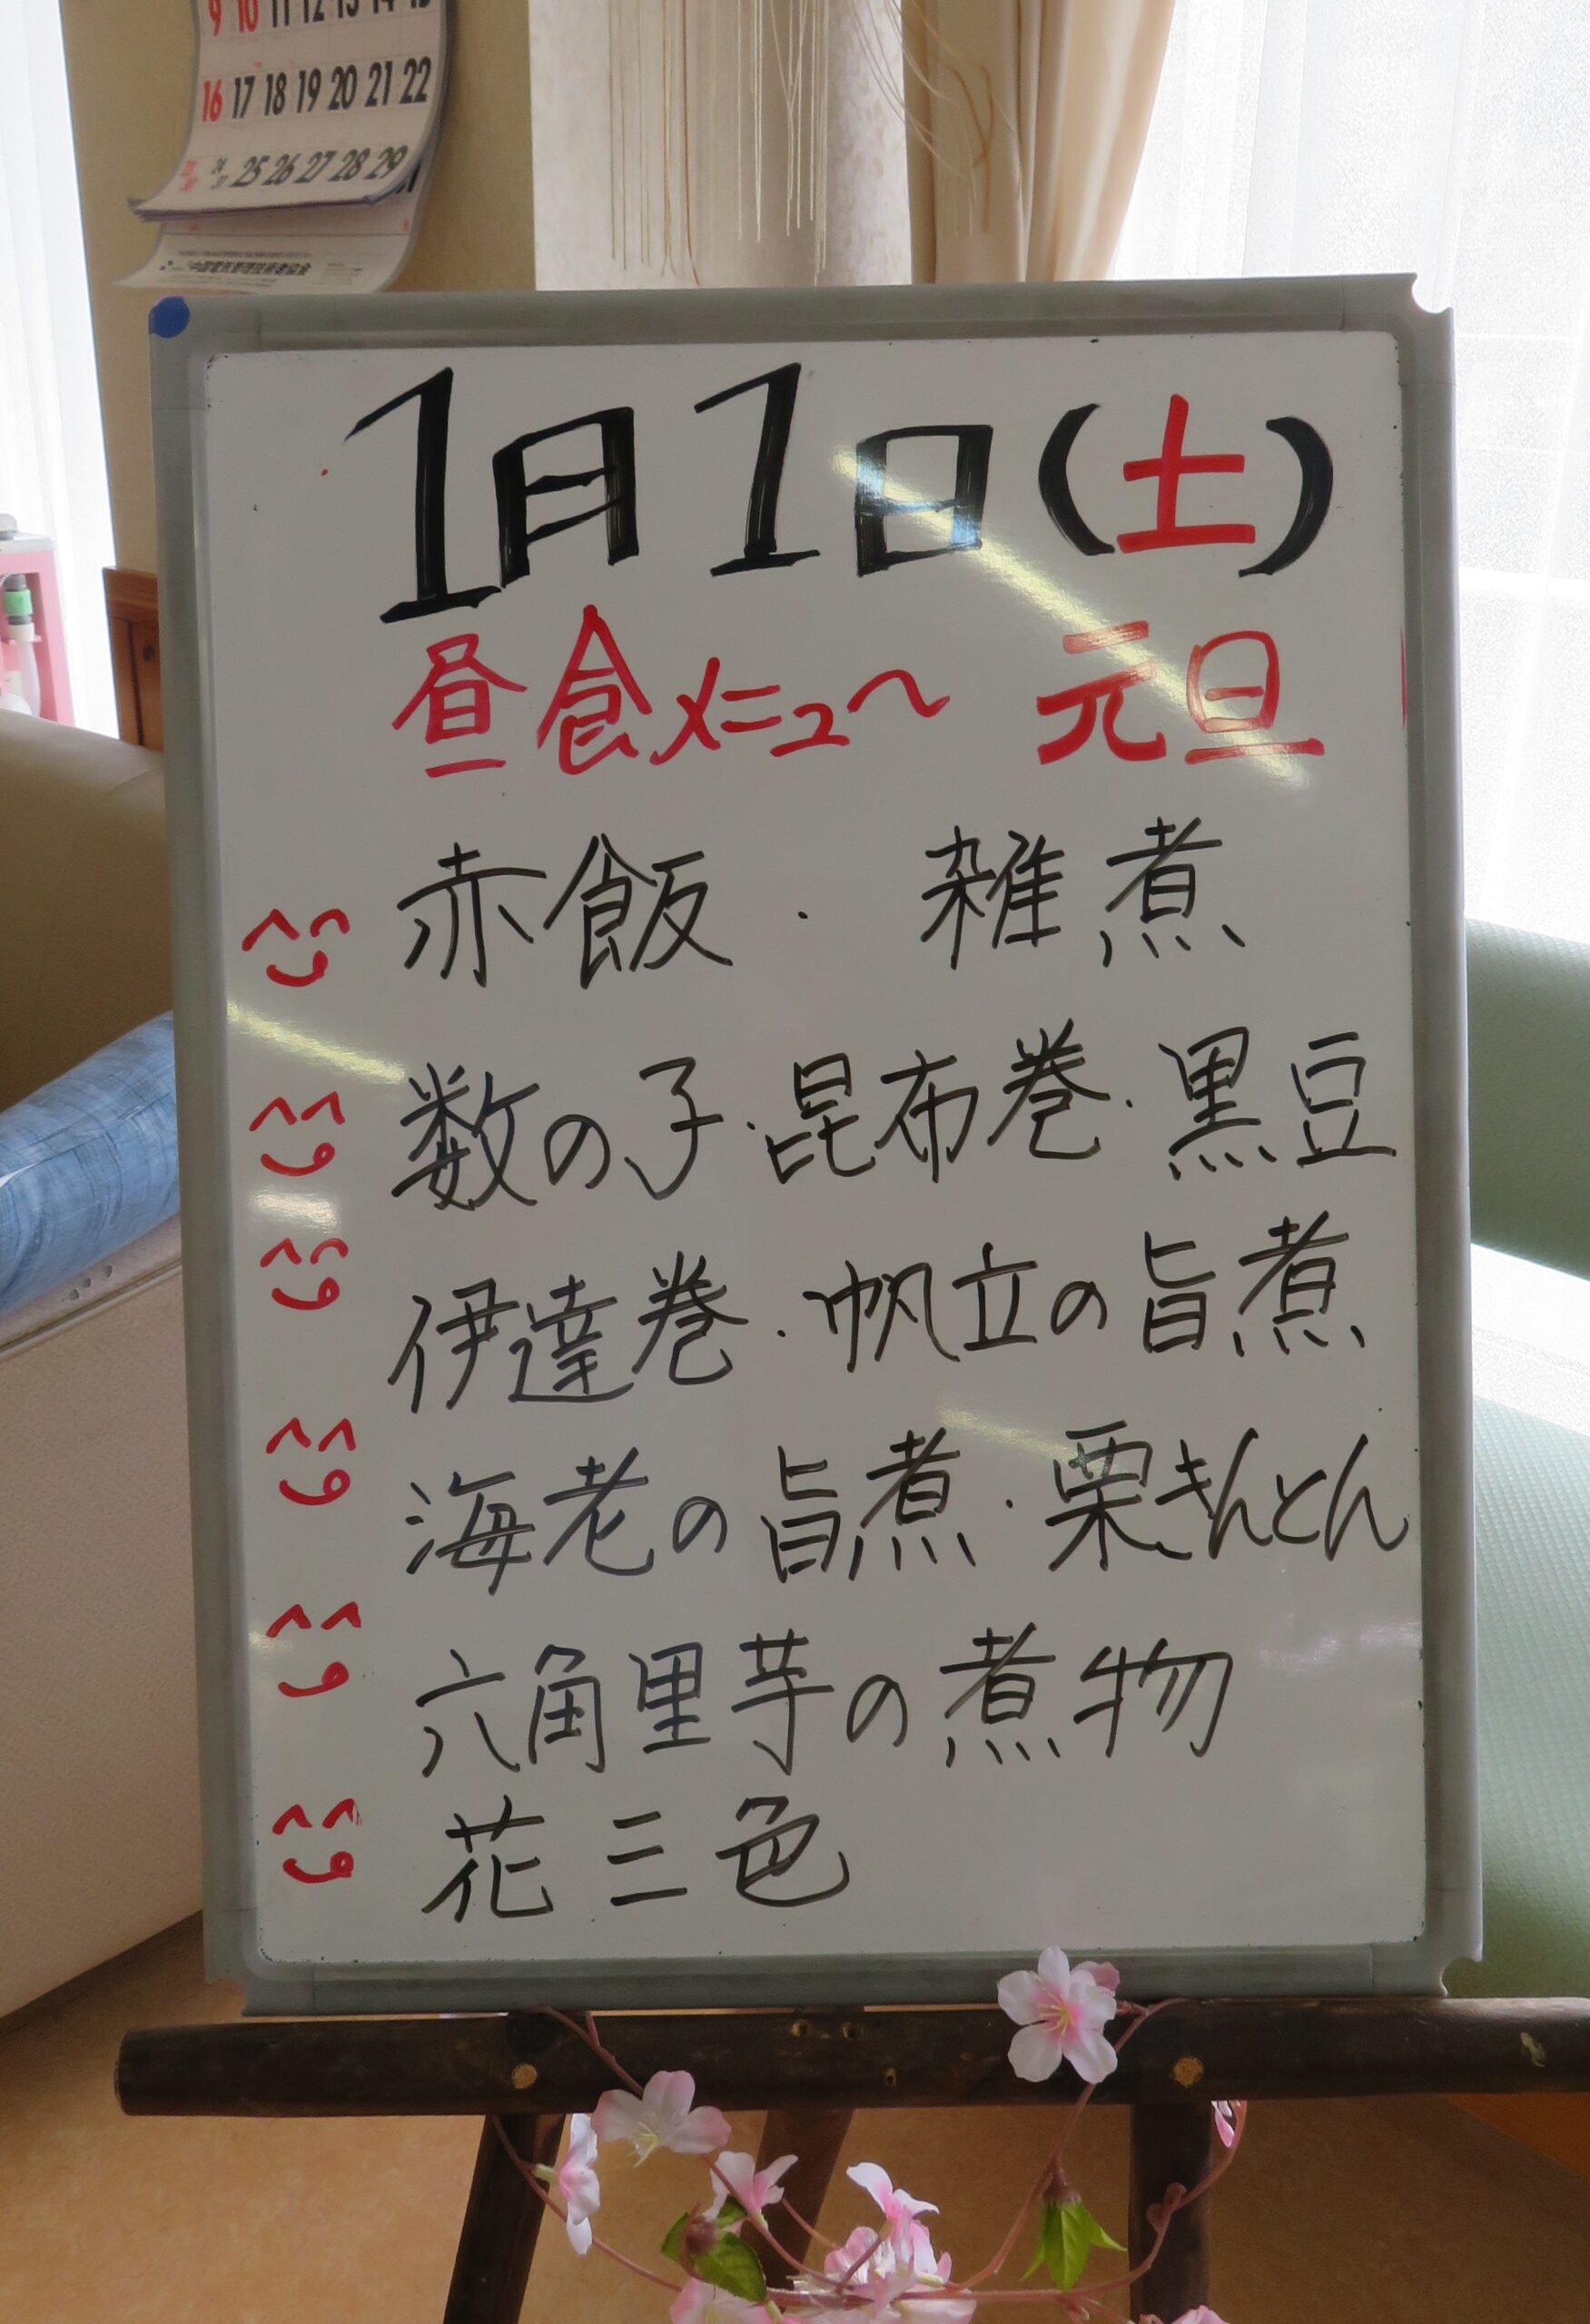 9 10 11 12 13 14 15
16 17 18 19 20 21 22
24 25 26 27 28 29
31
1月1日(土)
昼食メニュー 元旦
赤飯・雑煮
数の子・昆布巻・黒豆
伊達巻・帆立の旨煮
海老の旨煮・栗きんとん
六角里芋の煮物
花三色